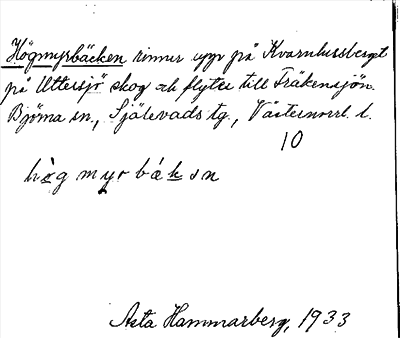 Högmyrbäcken rinner upp på Kvarnlussberget
på Uttersjö skog och flyter till Fräkensjön.
Björna sn., Själevads tg., Västernorrl. l.
10
hògmyrbáksn
Asta Hammarberg, 1933